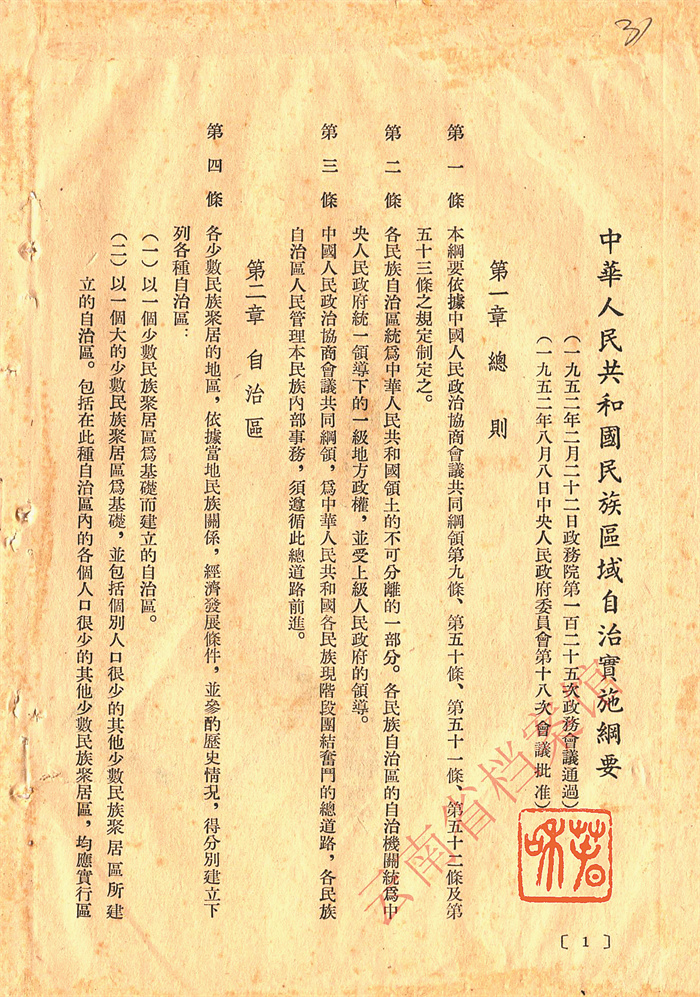 31
中華人民共和國民族區域自治實施綱要
(一九五二年二月二十二日政務院第一百二十五次政務會議通過)
(一九五二年八月八日中央人民政府委員會第十八次會議批准)
第一章 總則
第一條 本綱要依據中國人民政治協商會議共同綱領第九條、第五十條、第五十一條、第五十二條及第
五十三條之規定制定之。
第二條 各民族自治區統爲中華人民共和國領土的不可分離的一部分。各民族自治區的自治機關統爲中
央人民政府統一領導下的一級地方政權，並受上級人民政府的領導。
第三條 中國人民政治協商會議共同綱領，爲中華人民共和國各民族現階段團結奮鬥的總道路，各民族
自治區人民管理本民族內部事務，須遵循此總道路前進。
第二章 自治區
第四條 各少數民族聚居的地區，依據當地民族關係，經濟發展條件，並參酌歷史情況，得分別建立下
列各種自治區：
(一) 以一個少數民族聚居區爲基礎而建立的自治區。
(二) 以一個大的少數民族聚居區爲基礎，並包括個別人口很少的其他少數民族聚居區所建
立的自治區。包括在此種自治區內的各個人口很少的其他少數民族聚居區，均應實行區
〔1〕
云南省档案馆